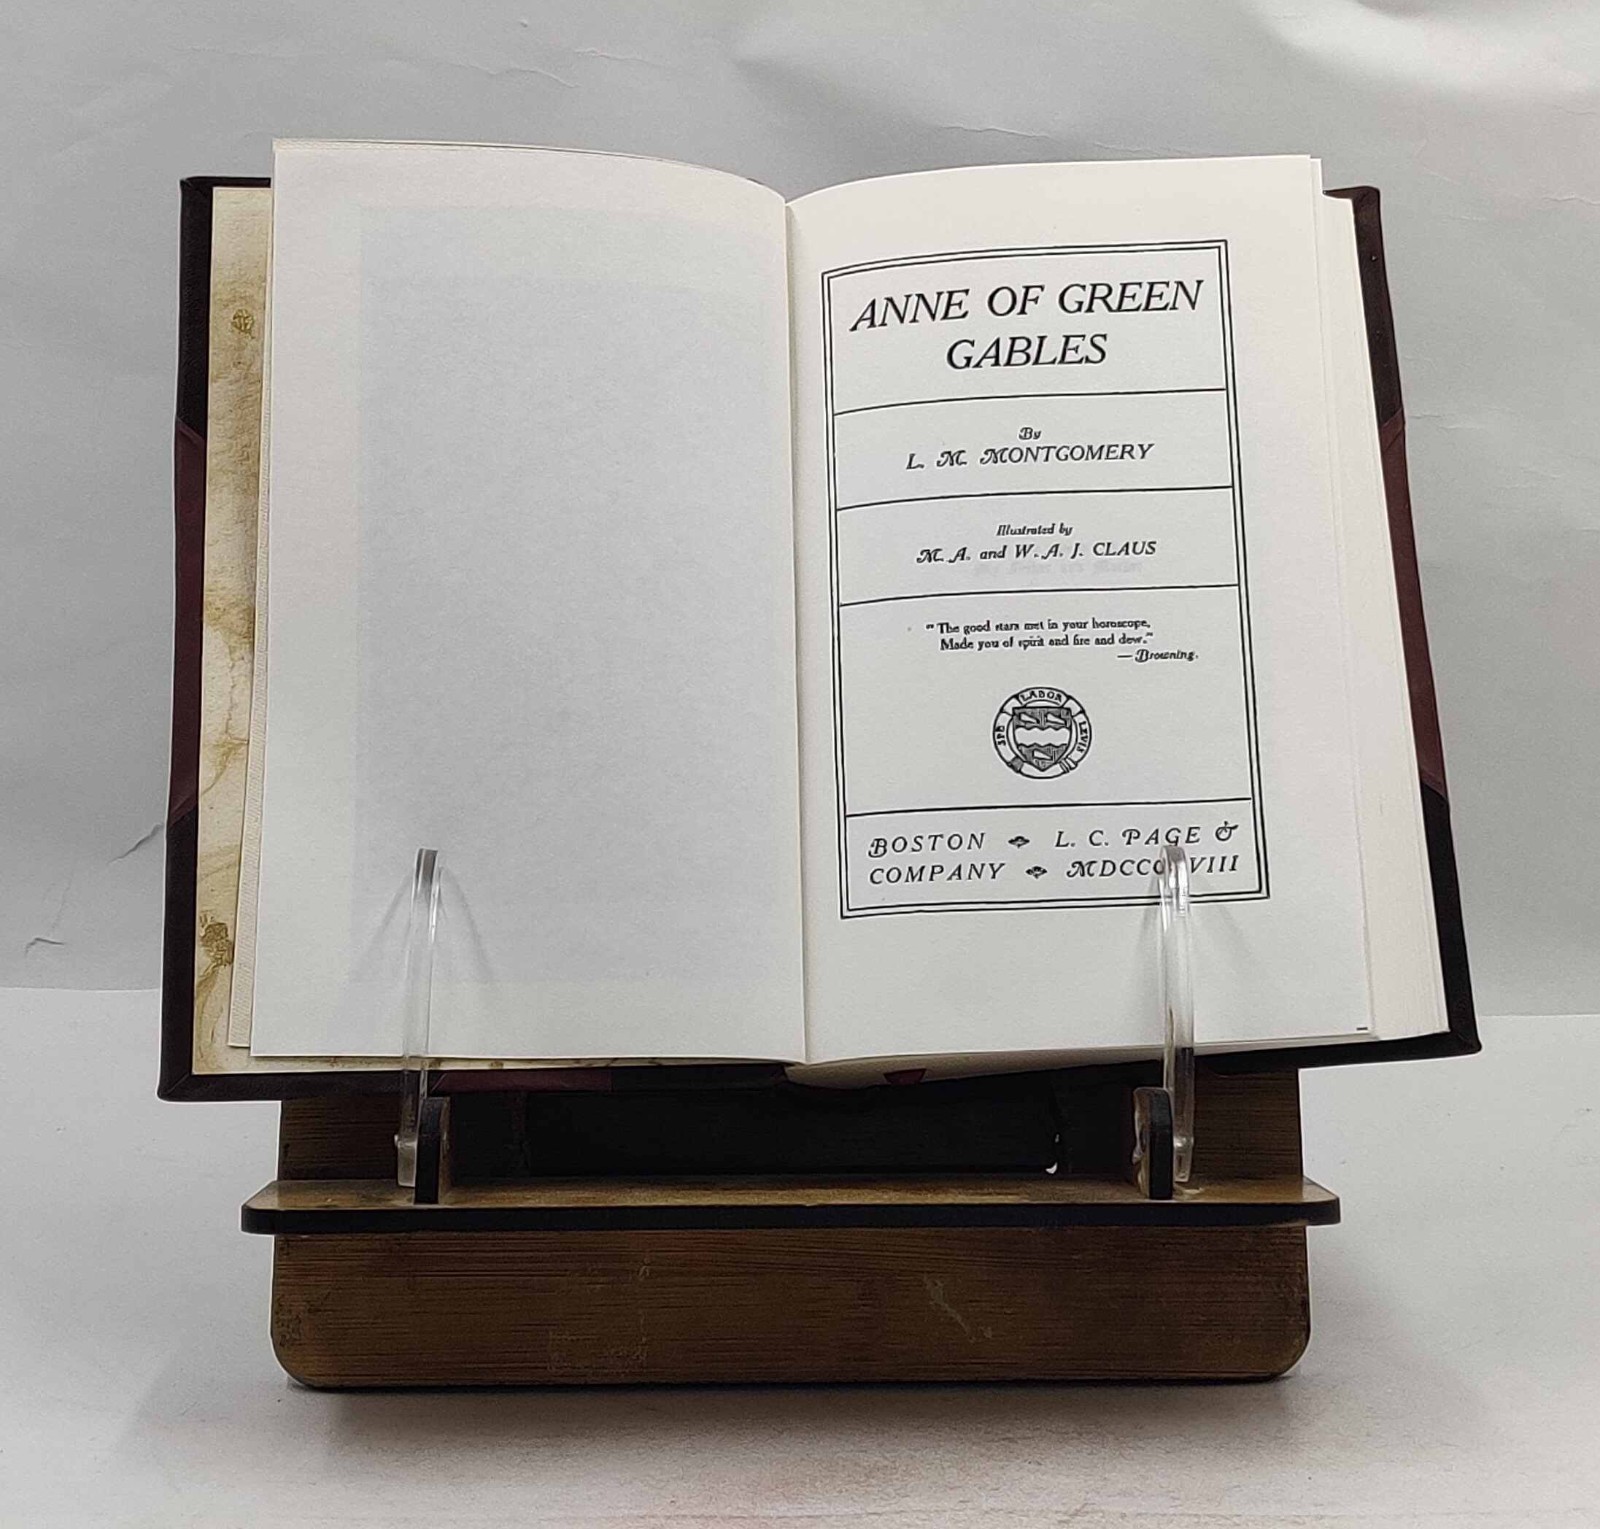 ANNE OF GREEN
GABLES
By
L. M. MONTGOMERY
Illustrated by
M. A. and W. A. J. CLAUS
"The good stars met in your horoscope,
Made you of spirit and fire and dew."
— Browning.
LABOR
SPE
LEVIS
BOSTON L. C. PAGE &
COMPANY